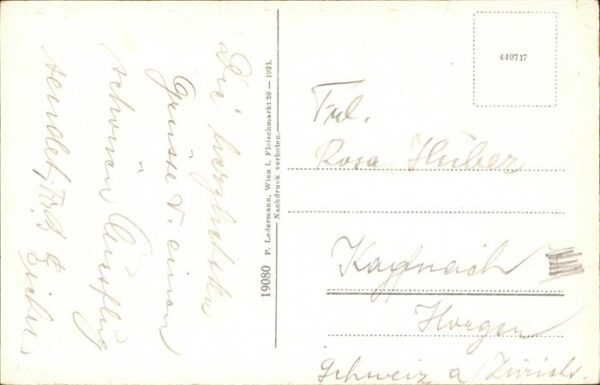 Die herzlichsten
Grüsse v. einem
schönen Ausflug
sendet, Frl. E
Eicher
19080 P. Ledermann, Wien I. Fleischmarkt 20 — 1931.
Nachdruck verboten.
440717
Frl.
Rosa Huber
Käpfnach
Horgen
Schweiz a/Zürichs.